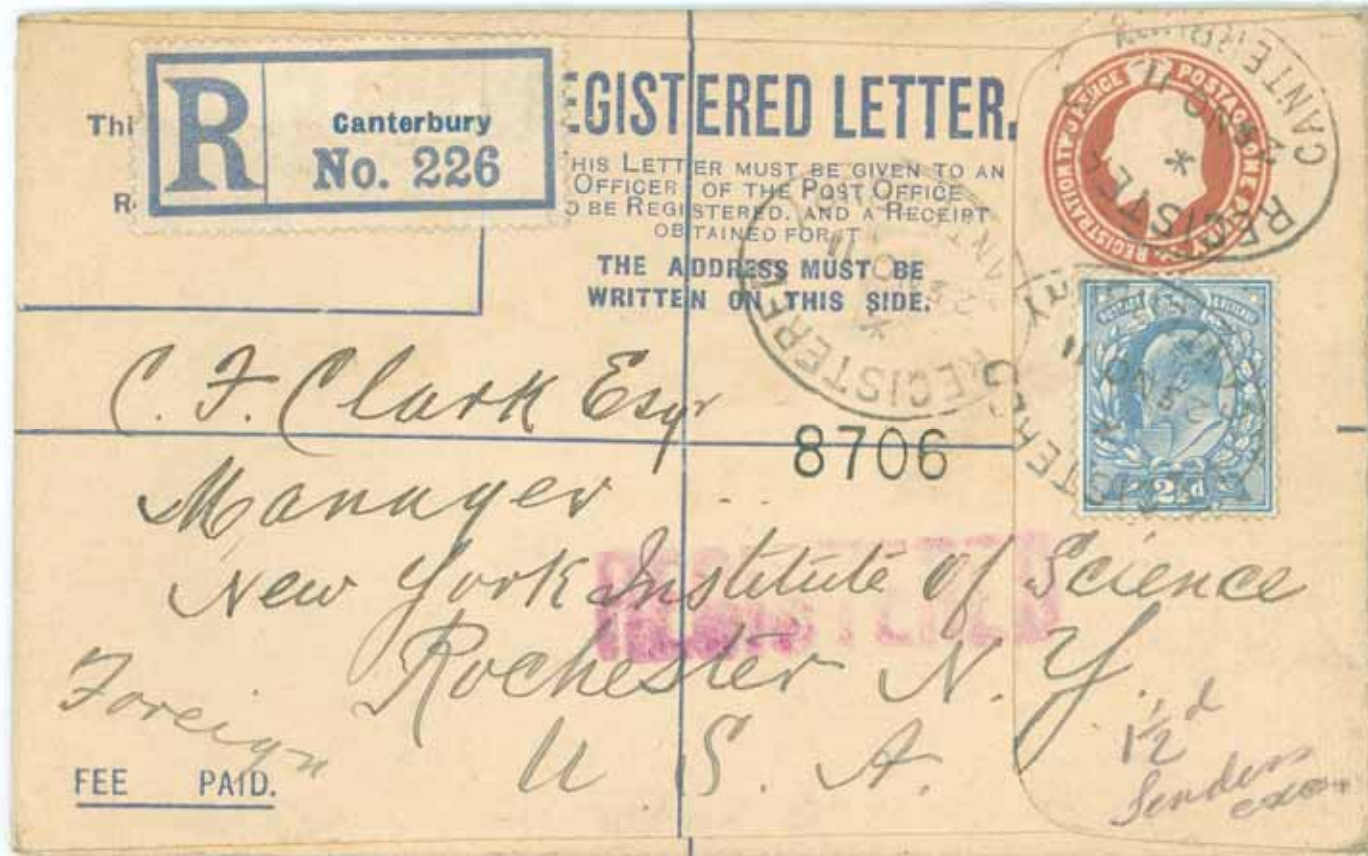 Thi
R
R
Canterbury
No. 226
EGISTERED LETTER.
HIS LETTER MUST BE GIVEN TO AN
OFFICER OF THE POST OFFICE
O BE REGISTERED, AND A RECEIPT
OBTAINED FOR IT
THE ADDRESS MUST BE
WRITTEN ON THIS SIDE.
REGISTRATION TWO PENCE POSTAGE ONE PENNY
REGISTERED
CANTERBURY
2½d
C. F. Clark Esqr
8706
Manager
New York Institute of Science
REGISTERED
Rochester N. Y.
U. S. A.
Foreign
FEE PAID.
1½d
Senders